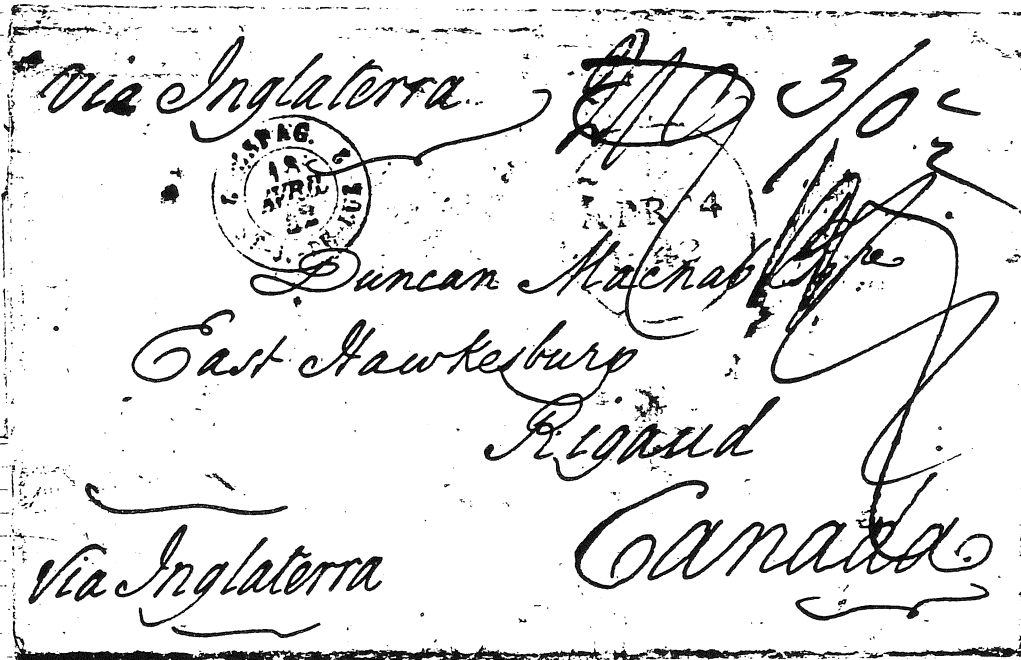 via Inglaterra
3/0
ESPAG.
18
AVRIL
ST. J. DE LUZ
APR 24
Duncan Macnab
East Hawkesbury
Rigaud
Canada
via Inglaterra